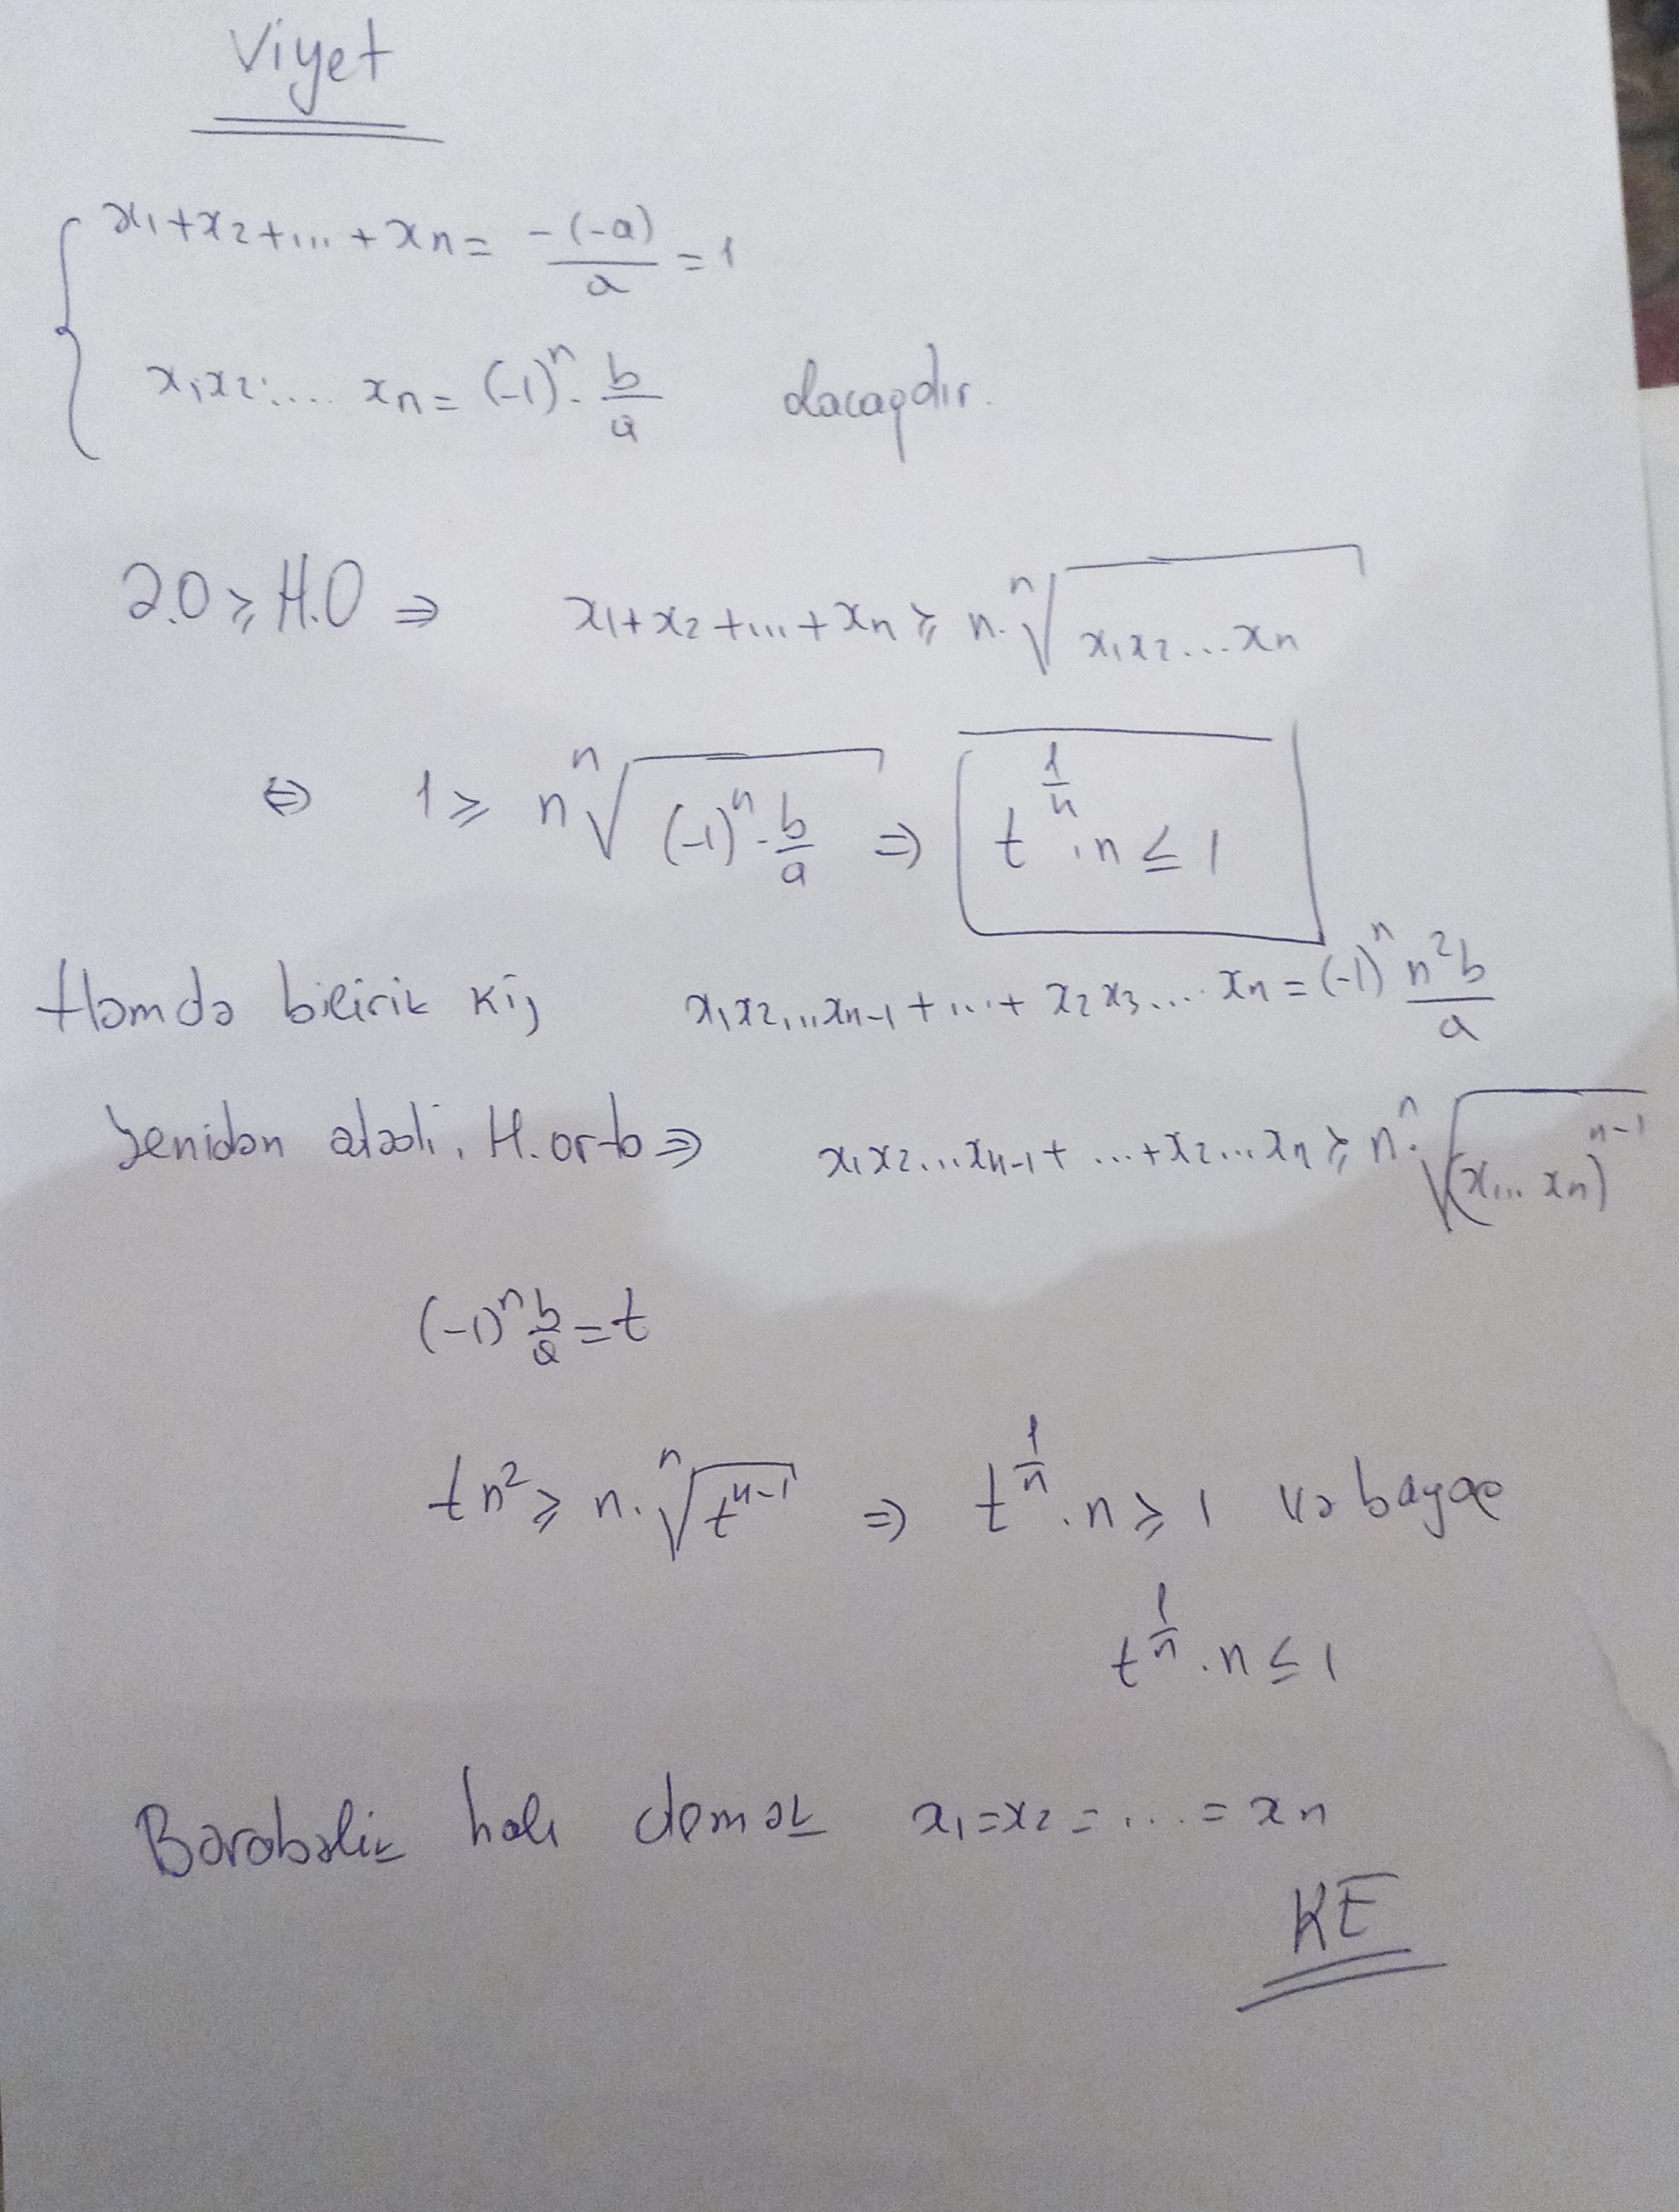 Viyet
x₁+x₂+...+xₙ = -(-a)/a = 1
x₁x₂.... xₙ = (-1)ⁿ · b/a olacaqdır.
Ə.O ≥ H.O ⇒ x₁+x₂+...+xₙ ≥ n·ⁿ√(x₁x₂...xₙ)
⇔ 1 ≥ n ⁿ√((-1)ⁿ·b/a) ⇒ t^(1/n) · n ≤ 1
Həmdə bilirik ki, x₁x₂...xₙ₋₁+...+x₂x₃....xₙ = (-1)ⁿ n²b/a
Yenidən ədədi, H.orta ⇒ x₁x₂...xₙ₋₁+...+x₂...xₙ ≥ n·ⁿ√((x₁...xₙ)ⁿ⁻¹)
(-1)ⁿ b/a = t
tn² ≥ n·ⁿ√(tⁿ⁻¹) ⇒ t^(1/n) · n ≥ 1 və bayaq
t^(1/n) · n ≤ 1
Bərabərlik halı demək x₁=x₂=...=xₙ
KE